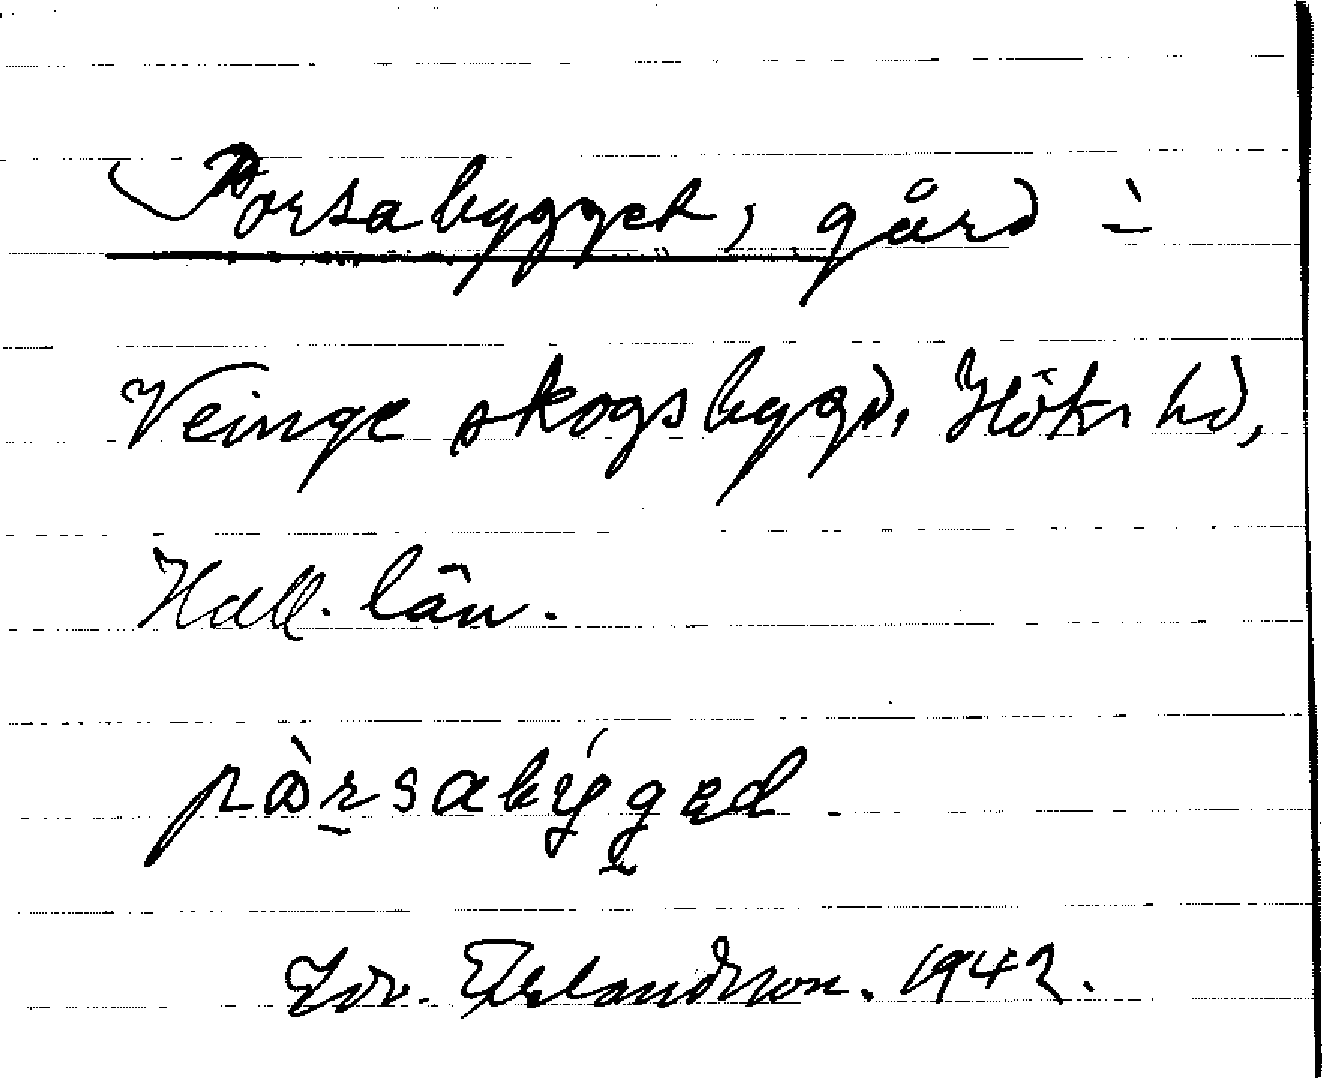 Porsabygget, gård i
Veinge skogsbygd, Höks hd,
Hall. län.
pàrsabýgəd
Edv. Erlandsson. 1942.